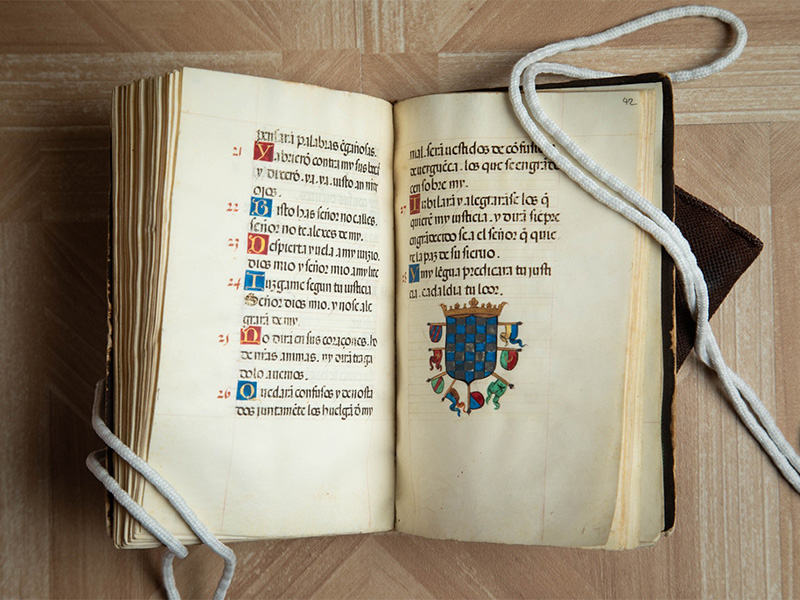 pensara palabras ēgañosas.
21 Y abrierō contra my sus boca
y dixerō. ya. ya. uisto an nr̄os
ojos.
22 B isto has señor no calles.
señor no te alexes de my.
23 D espierta y uela a my iuizio.
dios mio y señor mio a my lite
24 I uzgame segun tu iusticia
Señor dios mio. y no se ale
grarā de my.
25 N o dirā en sus coraçones. ho
de nr̄as animas. ny dirā traga
dolo auemos.
26 Q uedarā confusos y denosta
dos juntamēte los huelgā d my
42
mal. serā uestidos de cōfusiō
de uerguēça. los que se engrādе
cen sobre my.
27 I ubilarā y alegrarāse los q̄
quierē my iusticia. y dirā siēpre
engrādecido sea el señor q̄ quie
re la paz de su sieruo.
28 Y my lēgua predicara tu iusti
cia. cada dia tu loor.